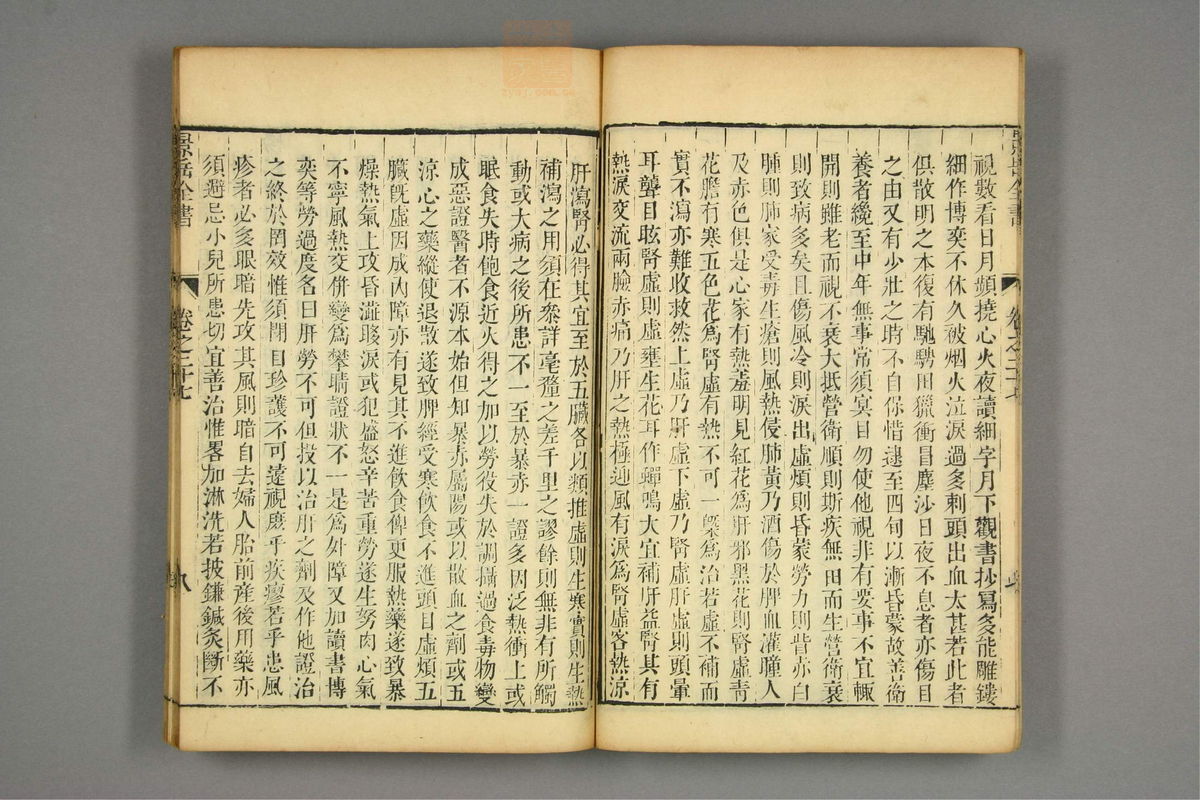 視數看日月頻撓心火夜讀細字月下觀書抄寫多能雕鏤
細作博奕不休久被烟火泣淚過多刺頭出血太甚若此者
俱散明之本復有馳騁田獵衝冒塵沙日夜不息者亦傷目
之由又有少壯之時不自保惜逮至四旬以漸昏蒙故善衛
養者纔至中年無事常須冥目勿使他視非有要事不宜輙
開則雖老而視不衰大抵營衛順則斯疾無由而生營衛衰
則致病多矣且傷風冷則淚出虛煩則昏蒙勞力則眥赤白
腫則肺家受毒生瘡則風熱侵肺黃乃酒傷於脾血灌瞳人
及赤色俱是心家有熱羞明見紅花為肝邪黑花則腎虛青
花膽有寒五色花為腎虛有熱不可一槩為治若虛不補而
實不瀉亦難收救然上虛乃肝虛下虛乃腎虛肝虛則頭暈
耳聾目眩腎虛則虛壅生花耳作蟬鳴大宜補肝益腎其有
熱淚交流兩臉赤痛乃肝之熱極迎風有淚為腎虛客熱涼
肝瀉腎必得其宜至於五臟各以類推虛則生寒實則生熱
補瀉之用須在參詳毫釐之差千里之謬餘則無非有所觸
動或大病之後所患不一至於暴赤一證多因泛熱衝上或
眠食失時飽食近火得之加以勞役失於調攝過食毒物變
成惡證醫者不源本始但知暴赤屬陽或以散血之劑或五
涼心之藥縱使退散遂致脾經受寒飲食不進頭目虛煩五
臟旣虛因成內障亦有見其不進飲食俾更服熱藥遂致暴
燥熱氣上攻昏澁眵淚或犯盛怒辛苦重勞遂生努肉心氣
不寧風熱交併變為攀睛證狀不一是為外障又加讀書博
奕等勞過度名曰肝勞不可但投以治肝之劑及作他證治
之終於罔效惟須閉目珍護不可遠視庶乎疾瘳若乎患風
疹者必多眼暗先攻其風則暗自去婦人胎前產後用藥亦
須避忌小兒所患切宜善治惟畧加淋洗若披鎌鍼灸斷不
景岳全書
卷之二十七
八